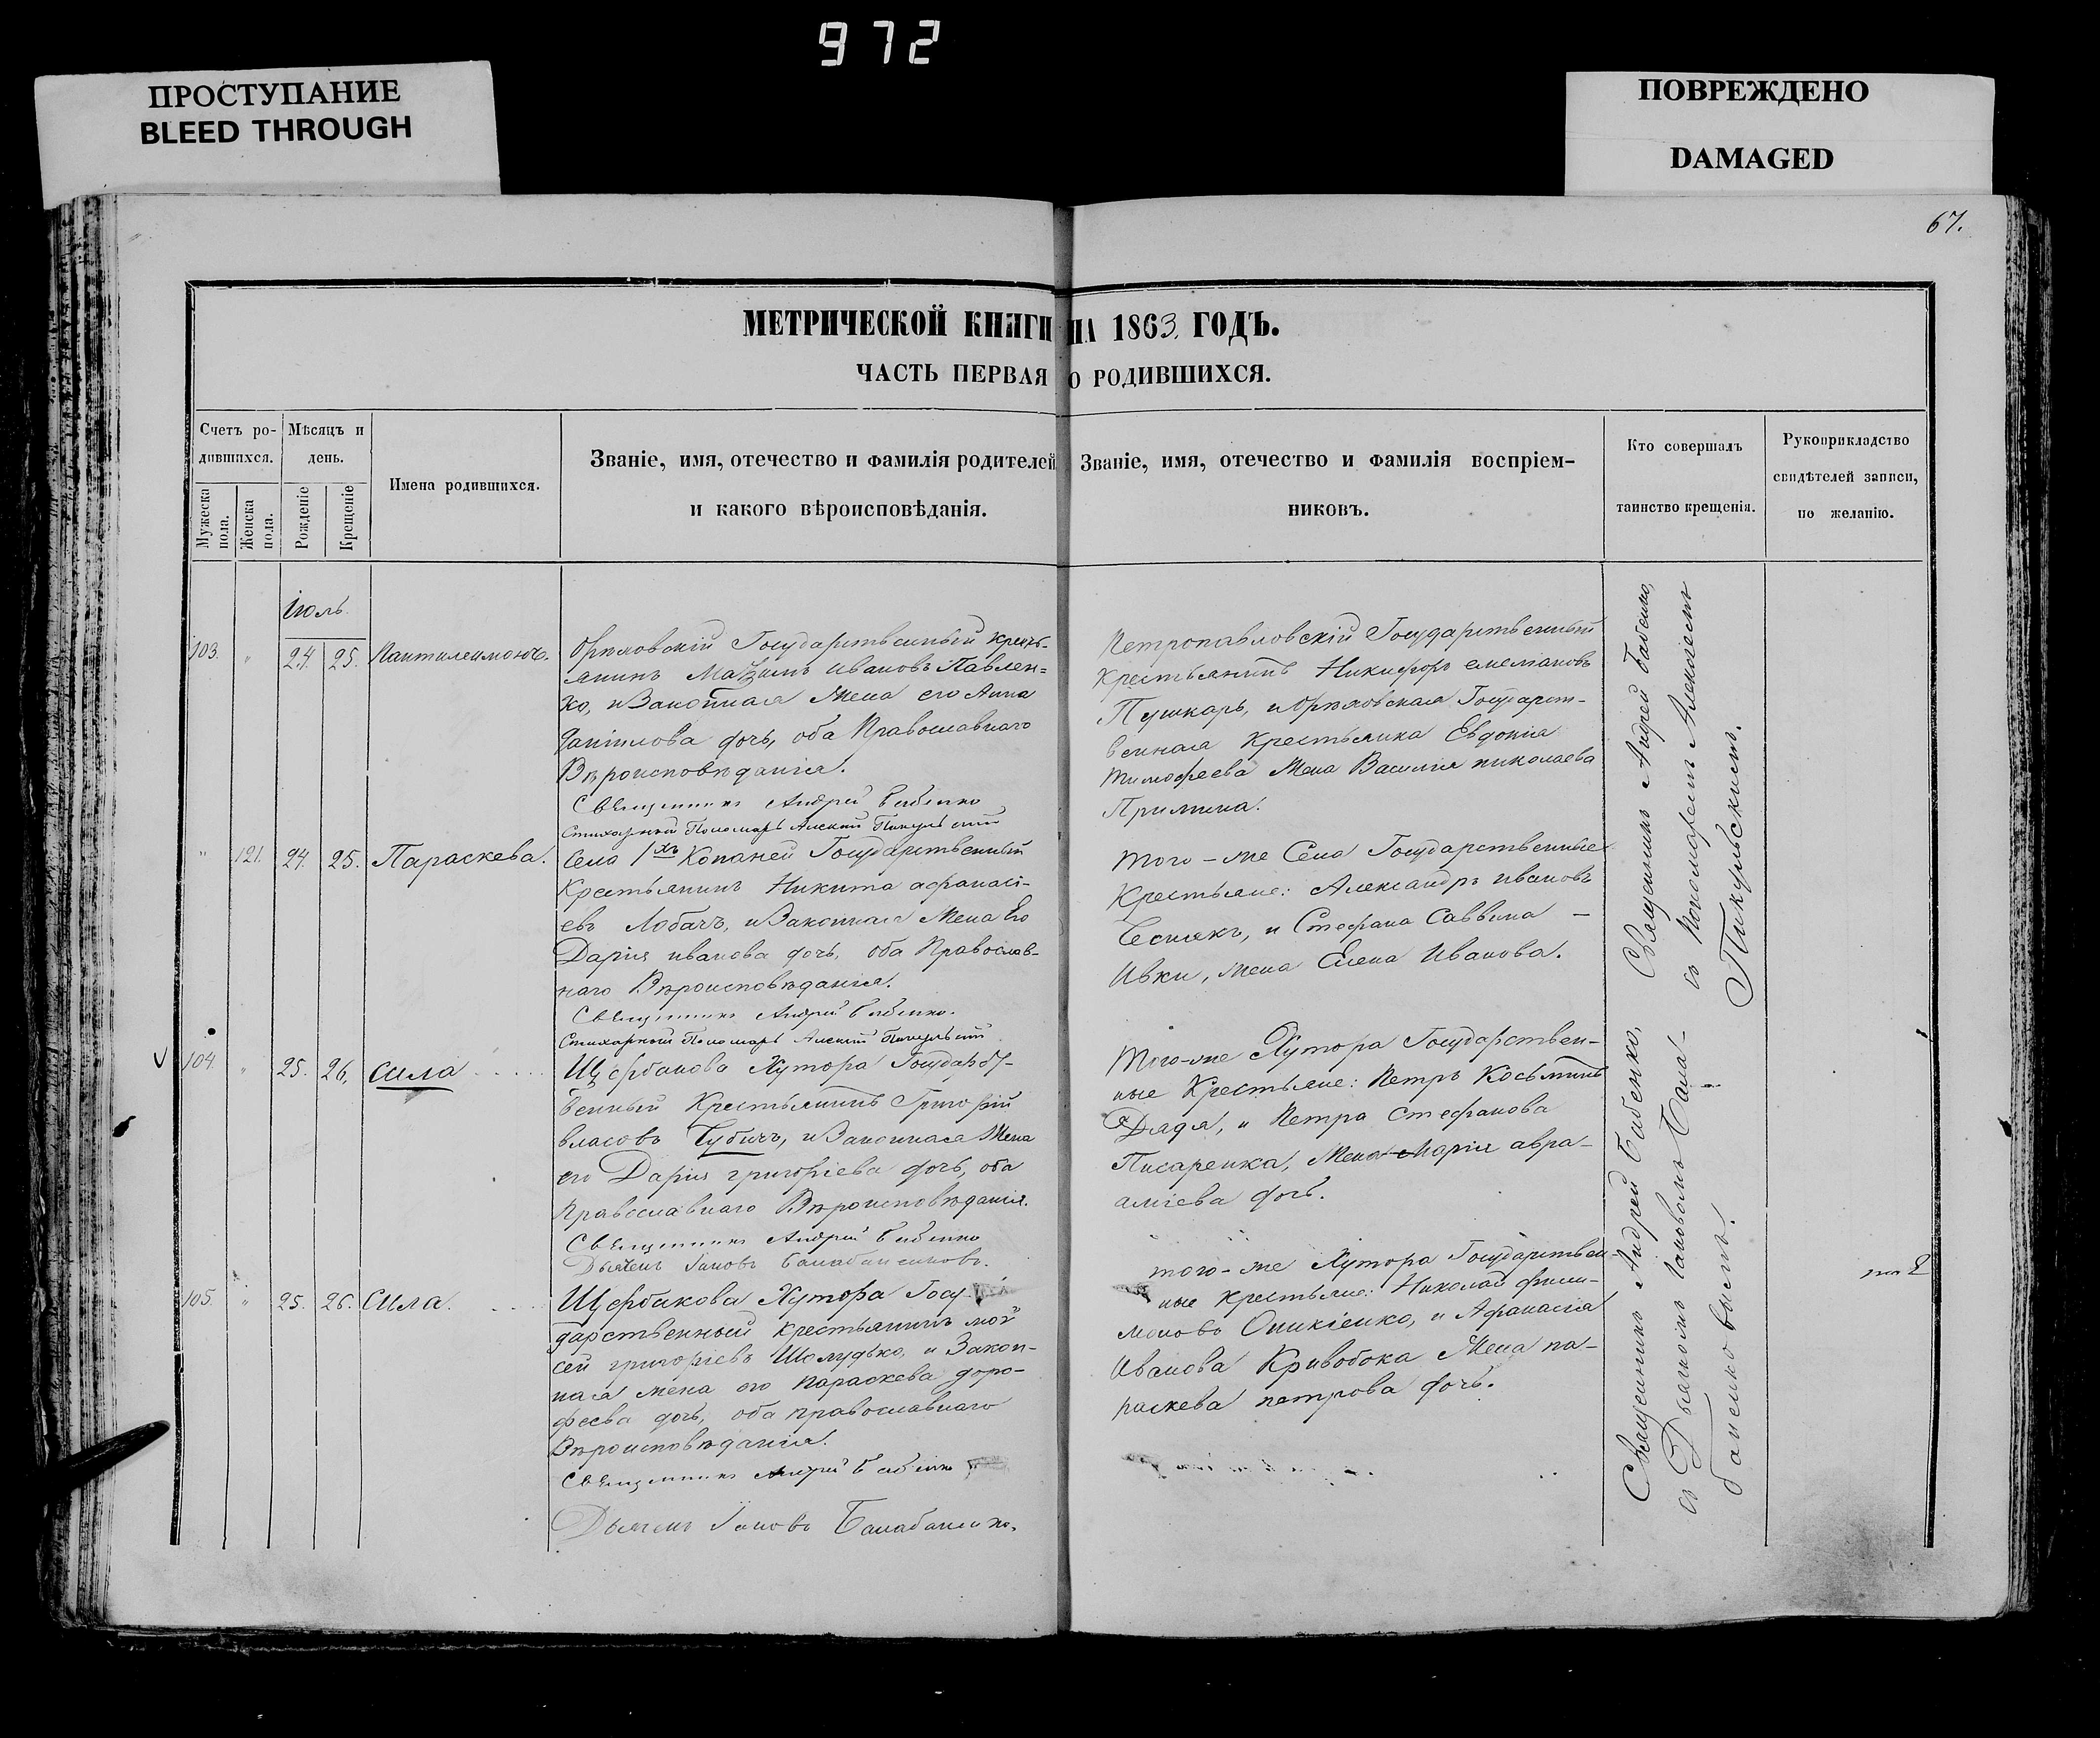 972
ПРОСТУПАНИЕ
BLEED THROUGH
ПОВРЕЖДЕНО
DAMAGED
67.
МЕТРИЧЕСКОЙ КНИГИ НА 1863. ГОДЪ.
ЧАСТЬ ПЕРВАЯ О РОДИВШИХСЯ.
Счетъ ро-
дившихся.
Мужеска пола.
Женска пола.
Мѣсяцъ и
день.
Рожденіе
Крещеніе
Имена родившихся.
Званіе, имя, отечество и фамилія родителей
и какого вѣроисповѣданія.
Званіе, имя, отечество и фамилія воспріем-
никовъ.
Кто совершалъ
таинство крещенія.
Рукоприкладство
свидѣтелей записи,
по желанію.
Іюль.
103. " 24. 25. Пантилеимонъ.
Орѣховскій Государственный кресть-
янинъ Мазимъ Ивановъ Павлен-
ко, и Законная Жена его Анна
дочь, оба Православнаго
Вѣроисповѣданія.
Священникъ Андрей Бабенко
Стихарный Пономарь Алексій Пикульскій
Петропавловскій Государственный
Крестьянинъ Никифоръ емеліановъ
Пушкарь, и Орѣховская Государст-
венная Крестьянка Евдокія
тимофеева Жена Василія николаева
Примина.
" 121. 24. 25. Параскева.
Села 1хъ Копаней Государственный
Крестьянинъ Никита афанасі-
евъ Лобачъ, и Законная Жена Его
Дарія иванова дочь, оба Православ-
наго Вѣроисповѣданія.
Священникъ Андрей Бабенко.
Стихарный Пономарь Алексій Пикульскій
того-же Села Государственные
Крестьяне: Александръ ивановъ
и Стефана Саввина
Ивки, жена Елена Иванова.
Священникъ Андрей Бабенко,
съ Пономаремъ Алексіемъ
Пикульскимъ.
V 104. " 25. 26. Сила
Щербакова Хутора Государст-
венный Крестьянинъ Григорій
власовъ Чубичъ, и Законная Жена
его Дарія григоріева дочь, оба
Православнаго Вѣроисповѣданія.
Священникъ Андрей Бабенко
Дьяконъ Іаковъ
Того-же Хутора Государствен-
ные Крестьяне: Петръ Косьминъ
Дядя, и Петра Стефанова
Писаренка, Жена Марія авра-
аміева дочь.
105. " 25. 26. Сила.
Щербакова Хутора Госу-
дарственный крестьянинъ мой
сей григоріевъ Шолудько, и Закон-
ная жена его параскева доро-
феева дочь, оба православнаго
Вѣроисповѣданія.
Священникъ Андрей Бабенко
Дьяконъ Іаковъ Балабаненко.
того-же Хутора Государствен-
ные крестьяне: Николай фили-
моновъ Оникіенко, и Афанасія
Иванова Кривобока Жена па-
раскева петрова дочь.
Священникъ Андрей Бабенко,
съ Дьякономъ Іаковомъ Бала-
баненковымъ.